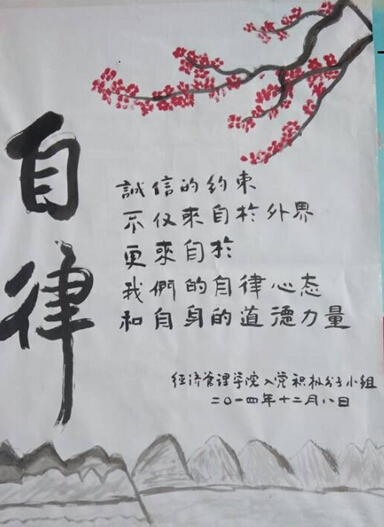 自律
誠信的约束
不仅來自於外界
更來自於
我們的自律心态
和自身的道德力量
经济管理学院入党积极分子小组
二〇一四年十二月八日